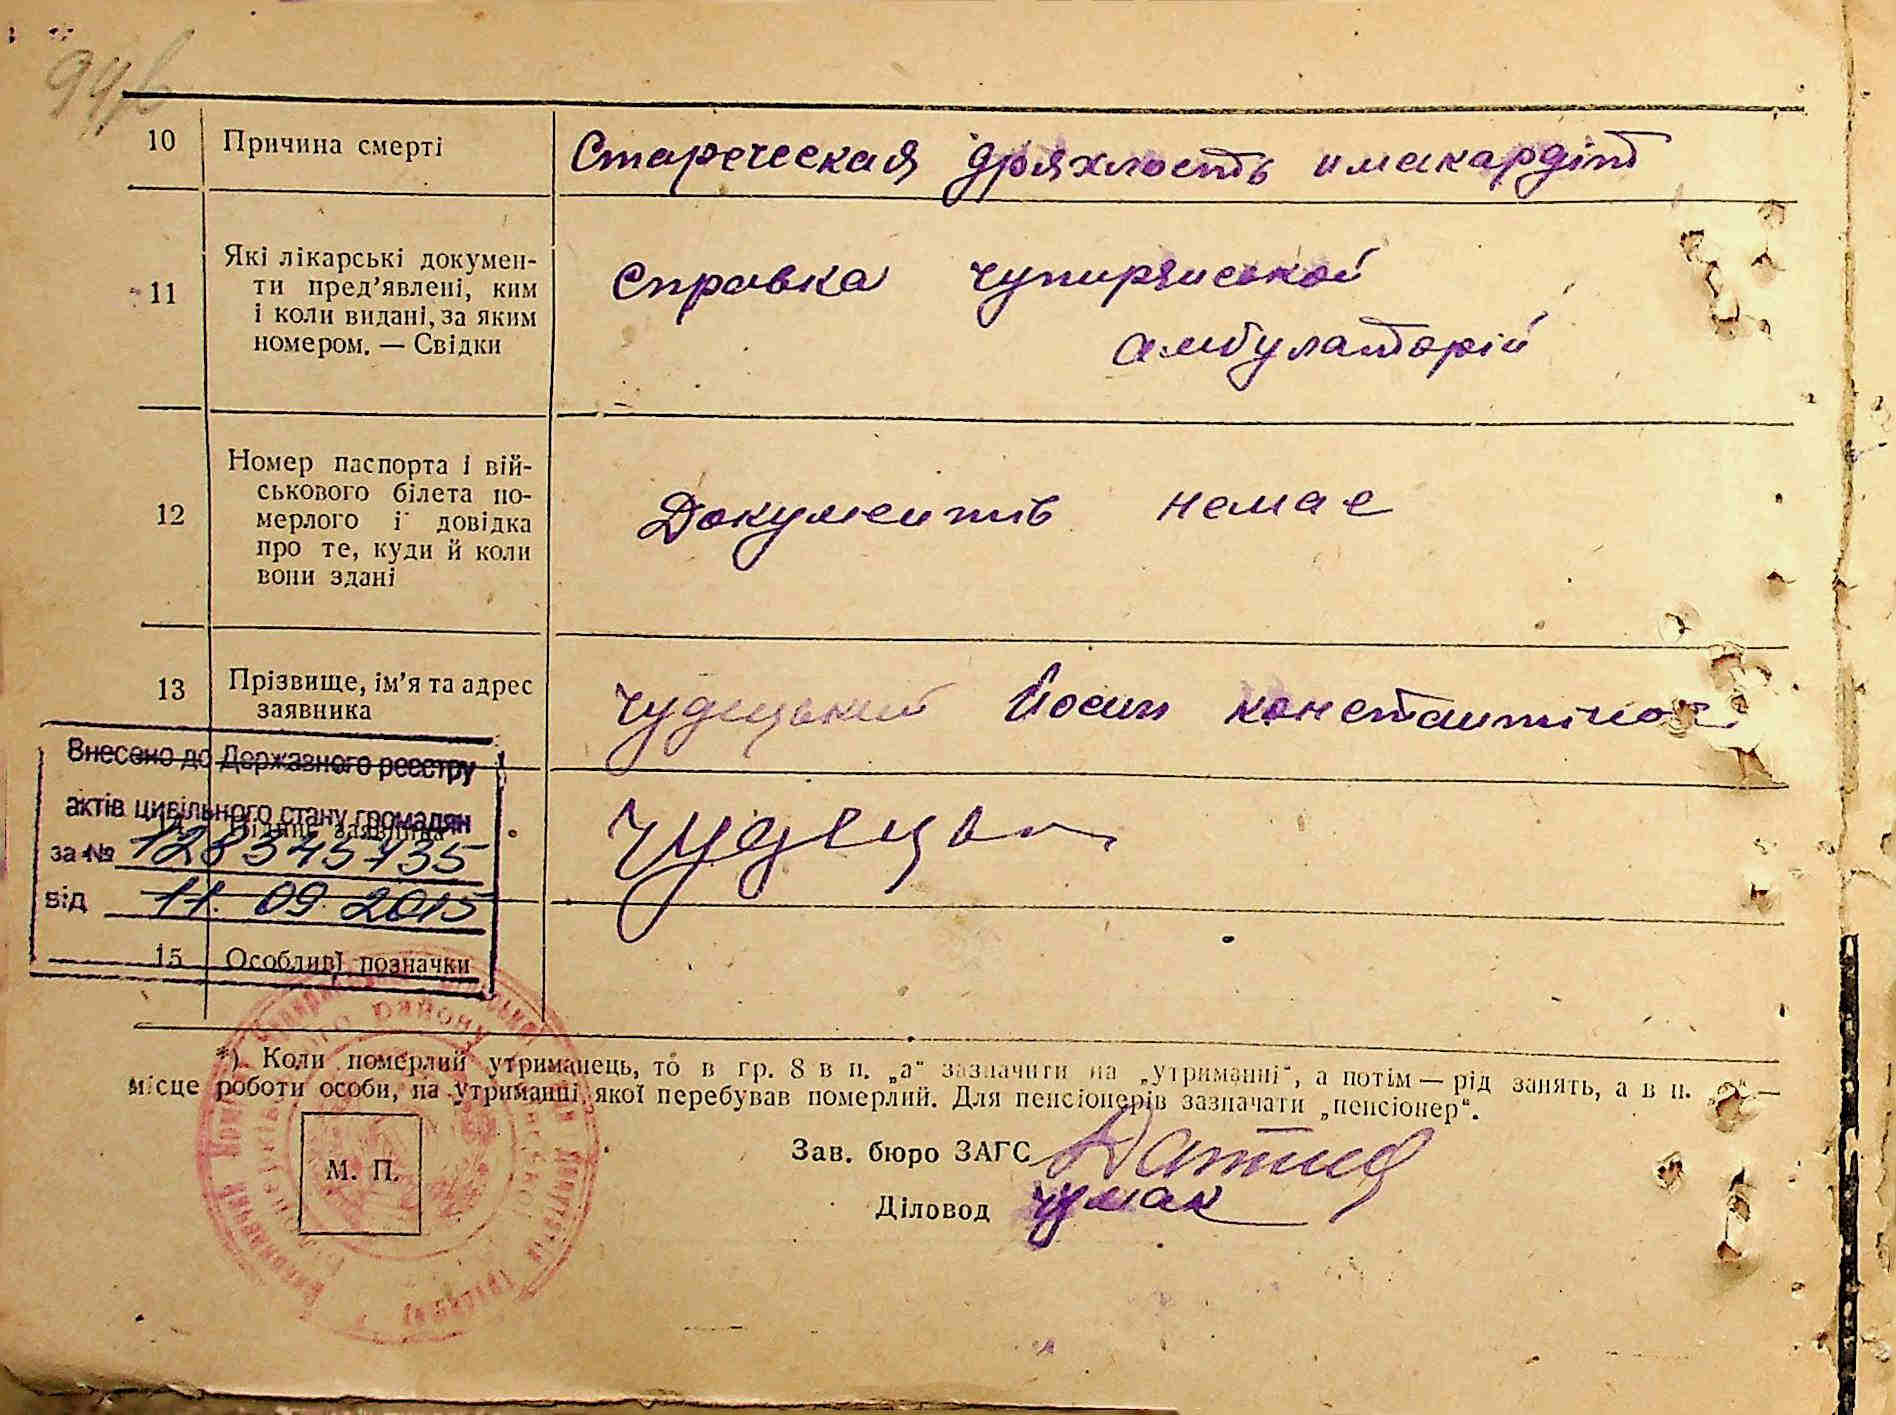 10 Причина смерті Старческая дряхлость и макардіт
11 Які лікарські докумен-
ти пред’явлені, ким
і коли видані, за яким
номером. — Свідки
Справка чупирянської
амбулаторій
12 Номер паспорта і вій-
ськового білета по-
мерлого і довідка
про те, куди й коли
вони здані
Документів немає
13 Прізвище, ім’я та адрес
заявника
Чудецький Йосип Константінов
Внесено до Державного реєстру
актів цивільного стану громадян
заявника
за № 128345735
від 11.09.2015
15 Особливі позначки
*) Коли померлий утриманець, то в гр. 8 в п. „а“ зазначити на „утриманні“, а потім — рід занять, а в п. —
місце роботи особи, на утриманні якої перебував померлий. Для пенсіонерів зазначати „пенсіонер“.
Зав. бюро ЗАГС
М. П.
Діловод Чумак